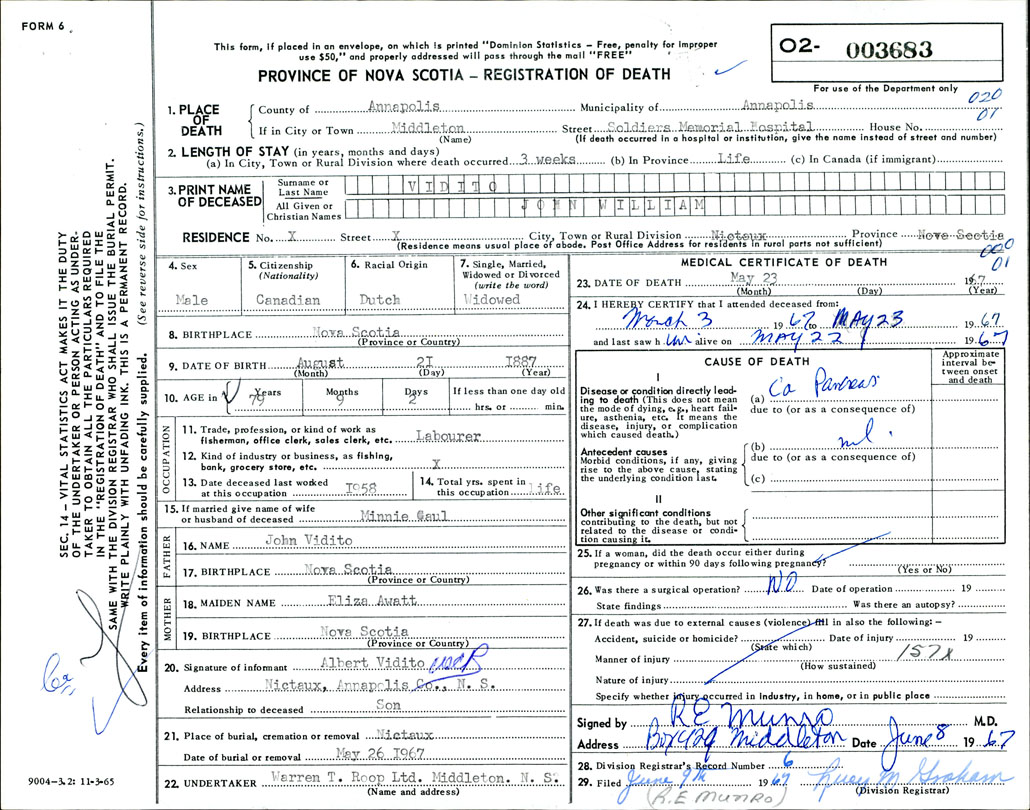 FORM 6
This form, if placed in an envelope, on which is printed "Dominion Statistics – Free, penalty for improper
use $50," and properly addressed will pass through the mail "FREE"
PROVINCE OF NOVA SCOTIA – REGISTRATION OF DEATH
O2- 003683
For use of the Department only
020
01
SEC. 14 – VITAL STATISTICS ACT MAKES IT THE DUTY
OF THE UNDERTAKER OR PERSON ACTING AS UNDER-
TAKER TO OBTAIN ALL THE PARTICULARS REQUIRED
IN THE "REGISTRATION OF DEATH" AND TO FILE THE
SAME WITH THE DIVISION REGISTRAR WHO SHALL ISSUE THE BURIAL PERMIT.
WRITE PLAINLY WITH UNFADING INK. THIS IS A PERMANENT RECORD.
Every item of information should be carefully supplied. (See reverse side for instructions.)
1. PLACE OF DEATH
County of Annapolis Municipality of Annapolis
If in City or Town Middleton Street Soldiers Memorial Hospital House No.
(Name) (If death occurred in a hospital or institution, give the name instead of street and number)
2. LENGTH OF STAY (in years, months and days)
(a) In City, Town or Rural Division where death occurred 3 weeks (b) In Province Life (c) In Canada (if immigrant)
3. PRINT NAME OF DECEASED
Surname or Last Name VIDITO
All Given or Christian Names JOHN WILLIAM
RESIDENCE No. X Street X City, Town or Rural Division Nictaux Province Nova Scotia
(Residence means usual place of abode. Post Office Address for residents in rural parts not sufficient)
01
4. Sex
Male
5. Citizenship
(Nationality)
Canadian
6. Racial Origin
Dutch
7. Single, Married,
Widowed or Divorced
(write the word)
Widowed
8. BIRTHPLACE Nova Scotia
(Province or Country)
9. DATE OF BIRTH August 2I I887
(Month) (Day) (Year)
10. AGE in Years Months Days If less than one day old
79 9 2 hrs. or min.
OCCUPATION
11. Trade, profession, or kind of work as
fisherman, office clerk, sales clerk, etc. Labourer
12. Kind of industry or business, as fishing,
bank, grocery store, etc. X
13. Date deceased last worked
at this occupation I958
14. Total yrs. spent in
this occupation life
15. If married give name of wife
or husband of deceased Minnie Gaul
FATHER
16. NAME John Vidito
17. BIRTHPLACE Nova Scotia
(Province or Country)
MOTHER
18. MAIDEN NAME Eliza Awatt
19. BIRTHPLACE Nova Scotia
(Province or Country)
20. Signature of informant Albert Vidito
Address Nictaux, Annapolis Co., N. S.
Relationship to deceased Son
21. Place of burial, cremation or removal Nictaux
Date of burial or removal May 26 I967
22. UNDERTAKER Warren T. Roop Ltd. Middleton. N. S.
(Name and address)
9004-3.2: 11-3-65
MEDICAL CERTIFICATE OF DEATH
23. DATE OF DEATH May 23 1967
(Month) (Day) (Year)
24. I HEREBY CERTIFY that I attended deceased from:
March 3 1967 to MAY 23 1967
and last saw him alive on MAY 22 1967
CAUSE OF DEATH
Approximate
interval be-
tween onset
and death
I
Disease or condition directly lead-
ing to death (This does not mean
the mode of dying, e.g., heart fail-
ure, asthenia, etc. It means the
disease, injury, or complication
which caused death.)
(a) Ca Pancreas
due to (or as a consequence of)
Antecedent causes
Morbid conditions, if any, giving
rise to the above cause, stating
the underlying condition last.
(b) nil.
due to (or as a consequence of)
(c)
II
Other significant conditions
contributing to the death, but not
related to the disease or condi-
tion causing it.
25. If a woman, did the death occur either during
pregnancy or within 90 days following pregnancy?
(Yes or No)
26. Was there a surgical operation? NO Date of operation 19
State findings Was there an autopsy?
27. If death was due to external causes (violence) fill in also the following: –
Accident, suicide or homicide? Date of injury 19
(State which)
Manner of injury 157X
(How sustained)
Nature of injury
Specify whether injury occurred in industry, in home, or in public place
Signed by R E Munro M.D.
Address Box 429 Middleton Date June 8 1967
28. Division Registrar's Record Number 6
29. Filed June 9th 1967 M Graham
(R.E MUNRO) (Division Registrar)